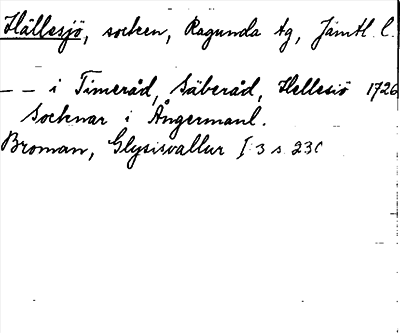 Hällesjö, socken, Ragunda tg, Jämtl. l.
– – i Timeråd, Säberåd, Hellesiö 1726
Socknar i Ångermanl.
Broman, Glysisvallur I:3 s. 230